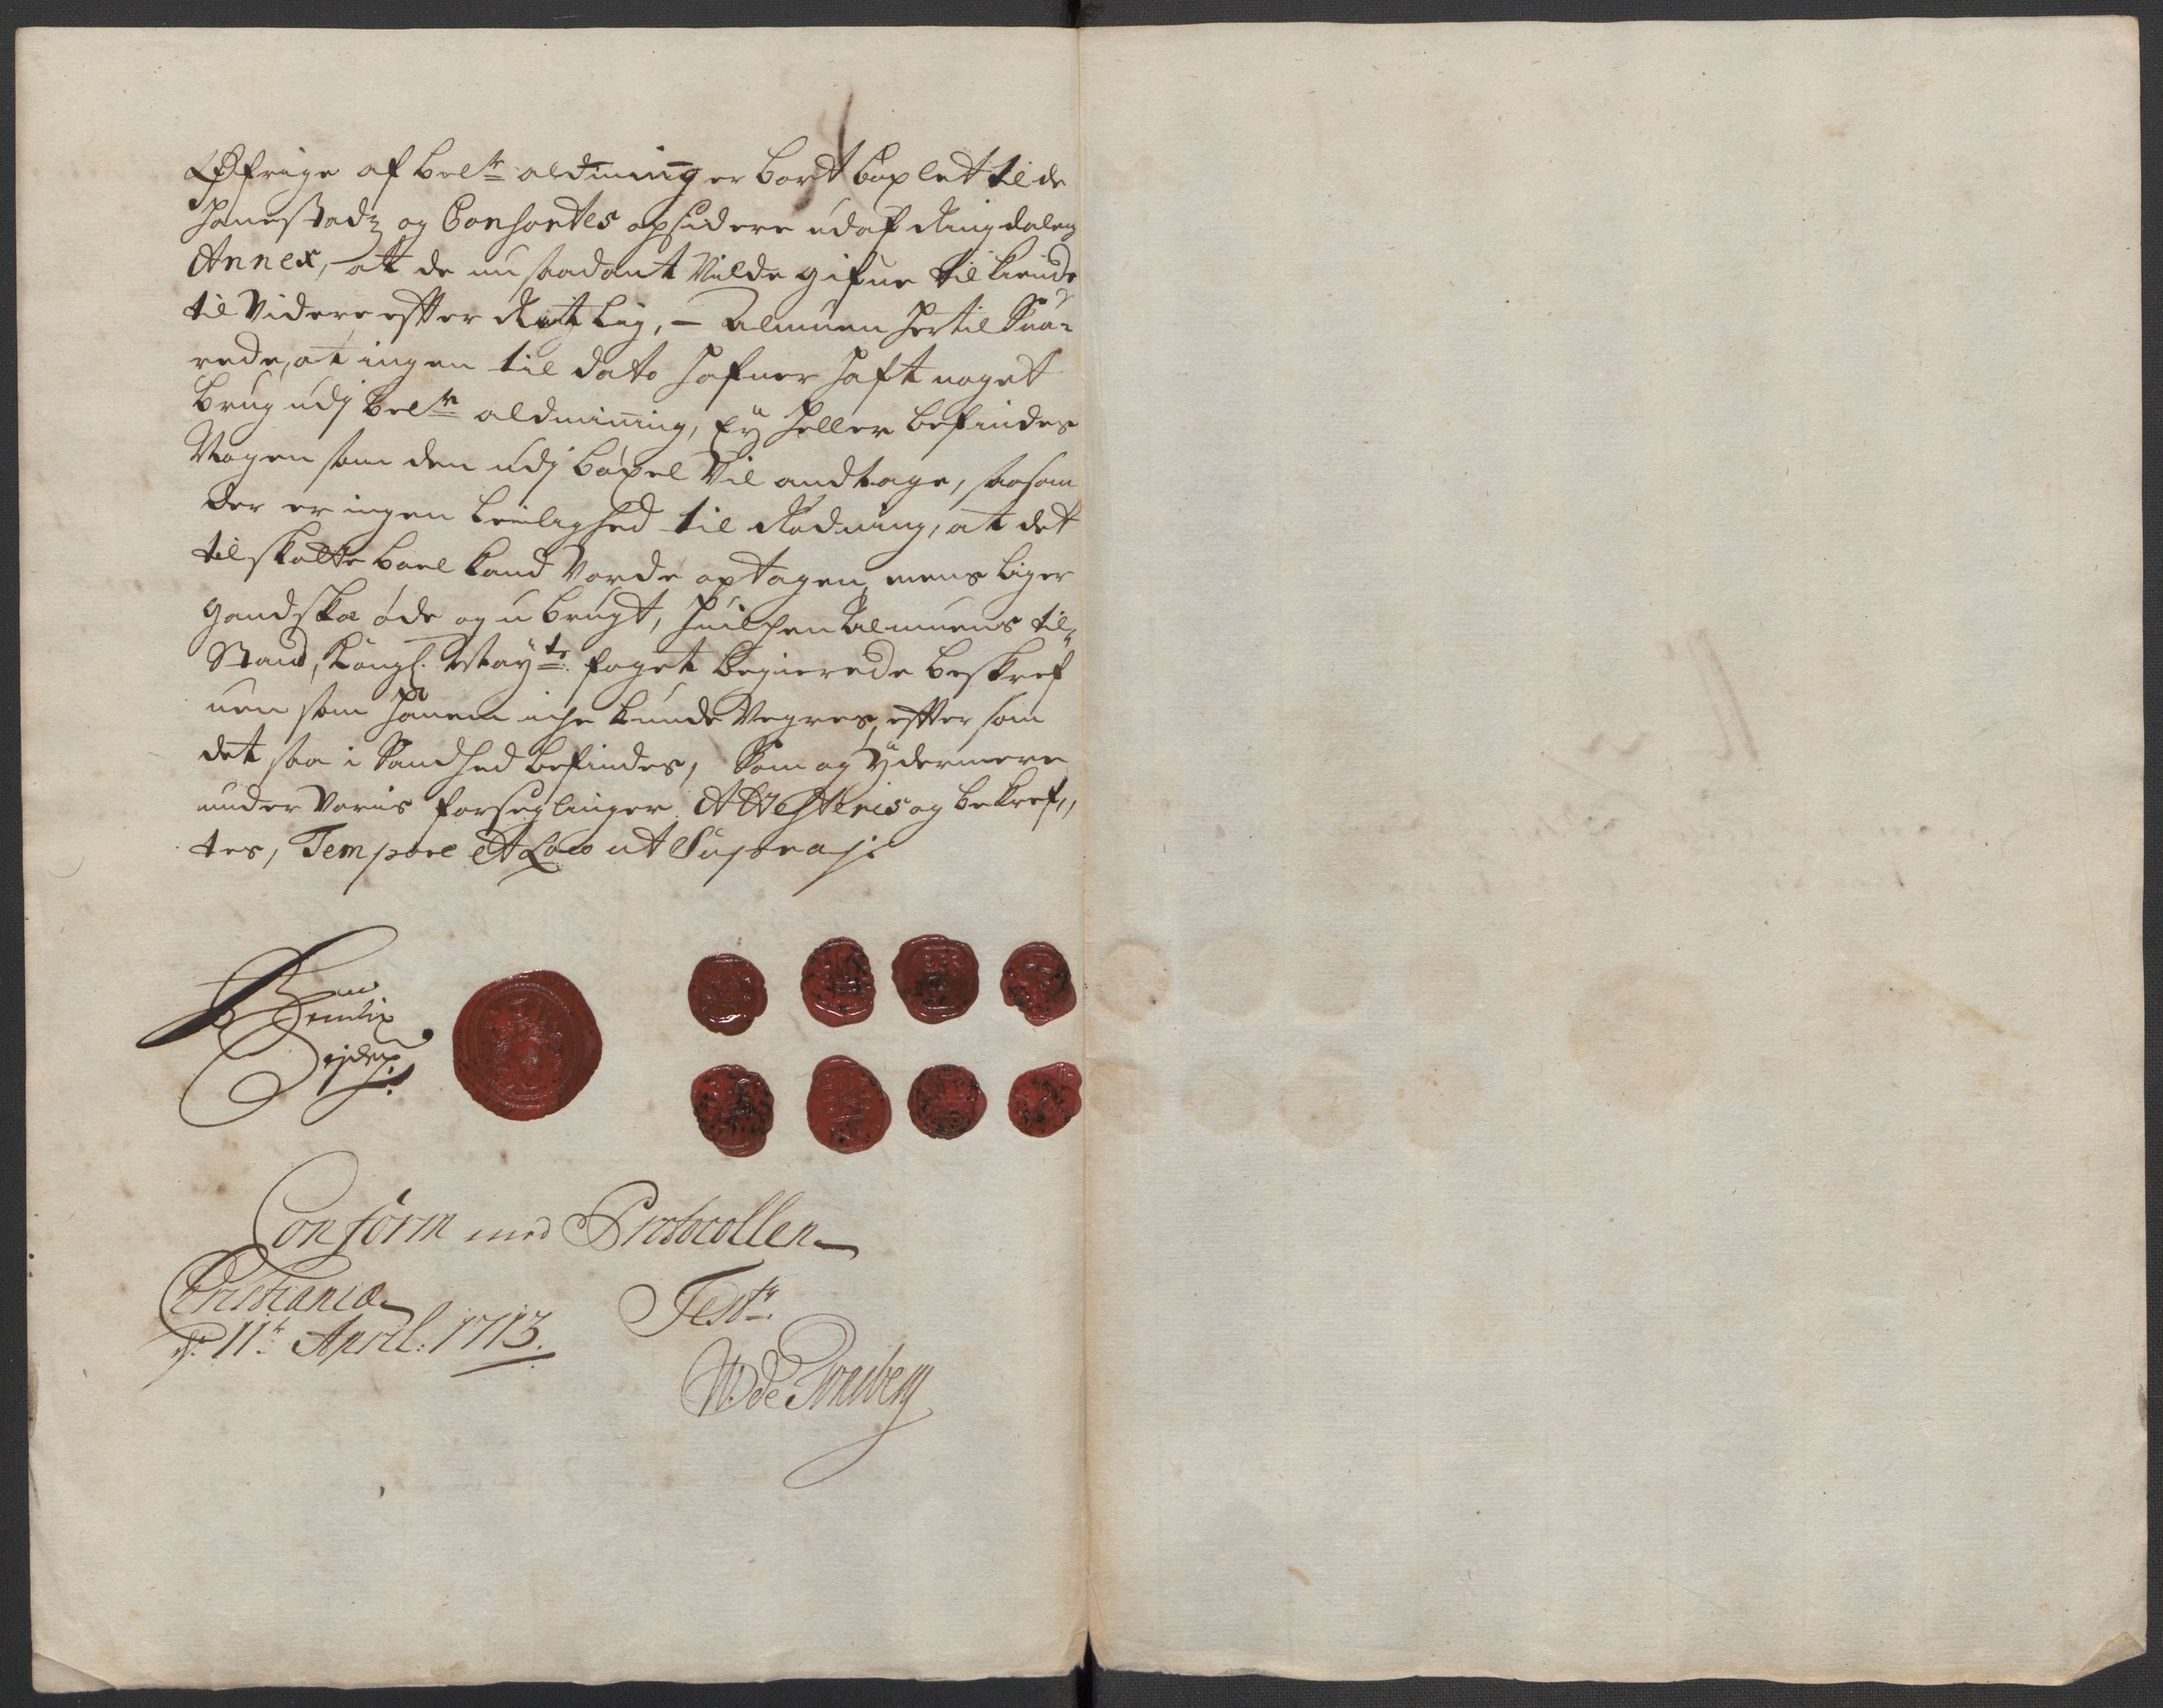 Øfrige af bem:te aldmining er bort böxlet til de
Hanestadz og Consortes opsidere udaf Ringdalens
Annex, at de nu saadant Vilde gifue til kiende
til Videre effter Rettlig, – Almuen hertil Sua-
rede, at ingen til dato hafuer hafft noget
brug udj bem:te aldminning, Ey heller befindes
Nogen som den udj böxel Vil andtage, saasom
der er ingen leilighed til Rödning, at det
til skatte böel kand Vorde optagen, mens liger
gandske öde og u brugt, huilchen Almuens til-
Stand, Kongl: May:ts foget begierede beskref
uen som hannem iche kunde Vegres, effter som
det saa i Sandhed befindes, Som og ydermere
under Voris forseglinger Attesteris og bekref,,
tes, Tempore et Loco ut Supra /:
Conform med Protocollen
Christiania
d: 11te April: 1713.
Test:
W de Tonsberg